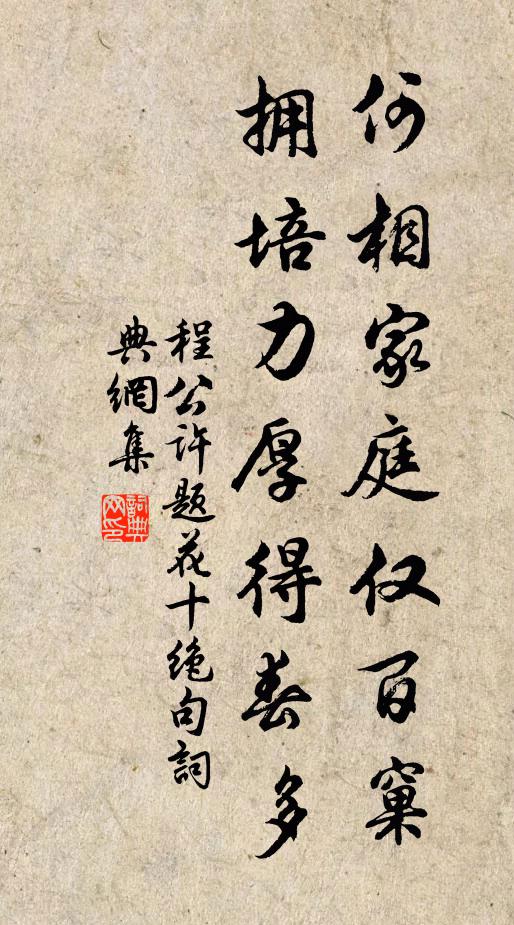 何相家庭仅百窠
拥培力厚得春多
程公许题花十绝句词
典網集
詞典网印